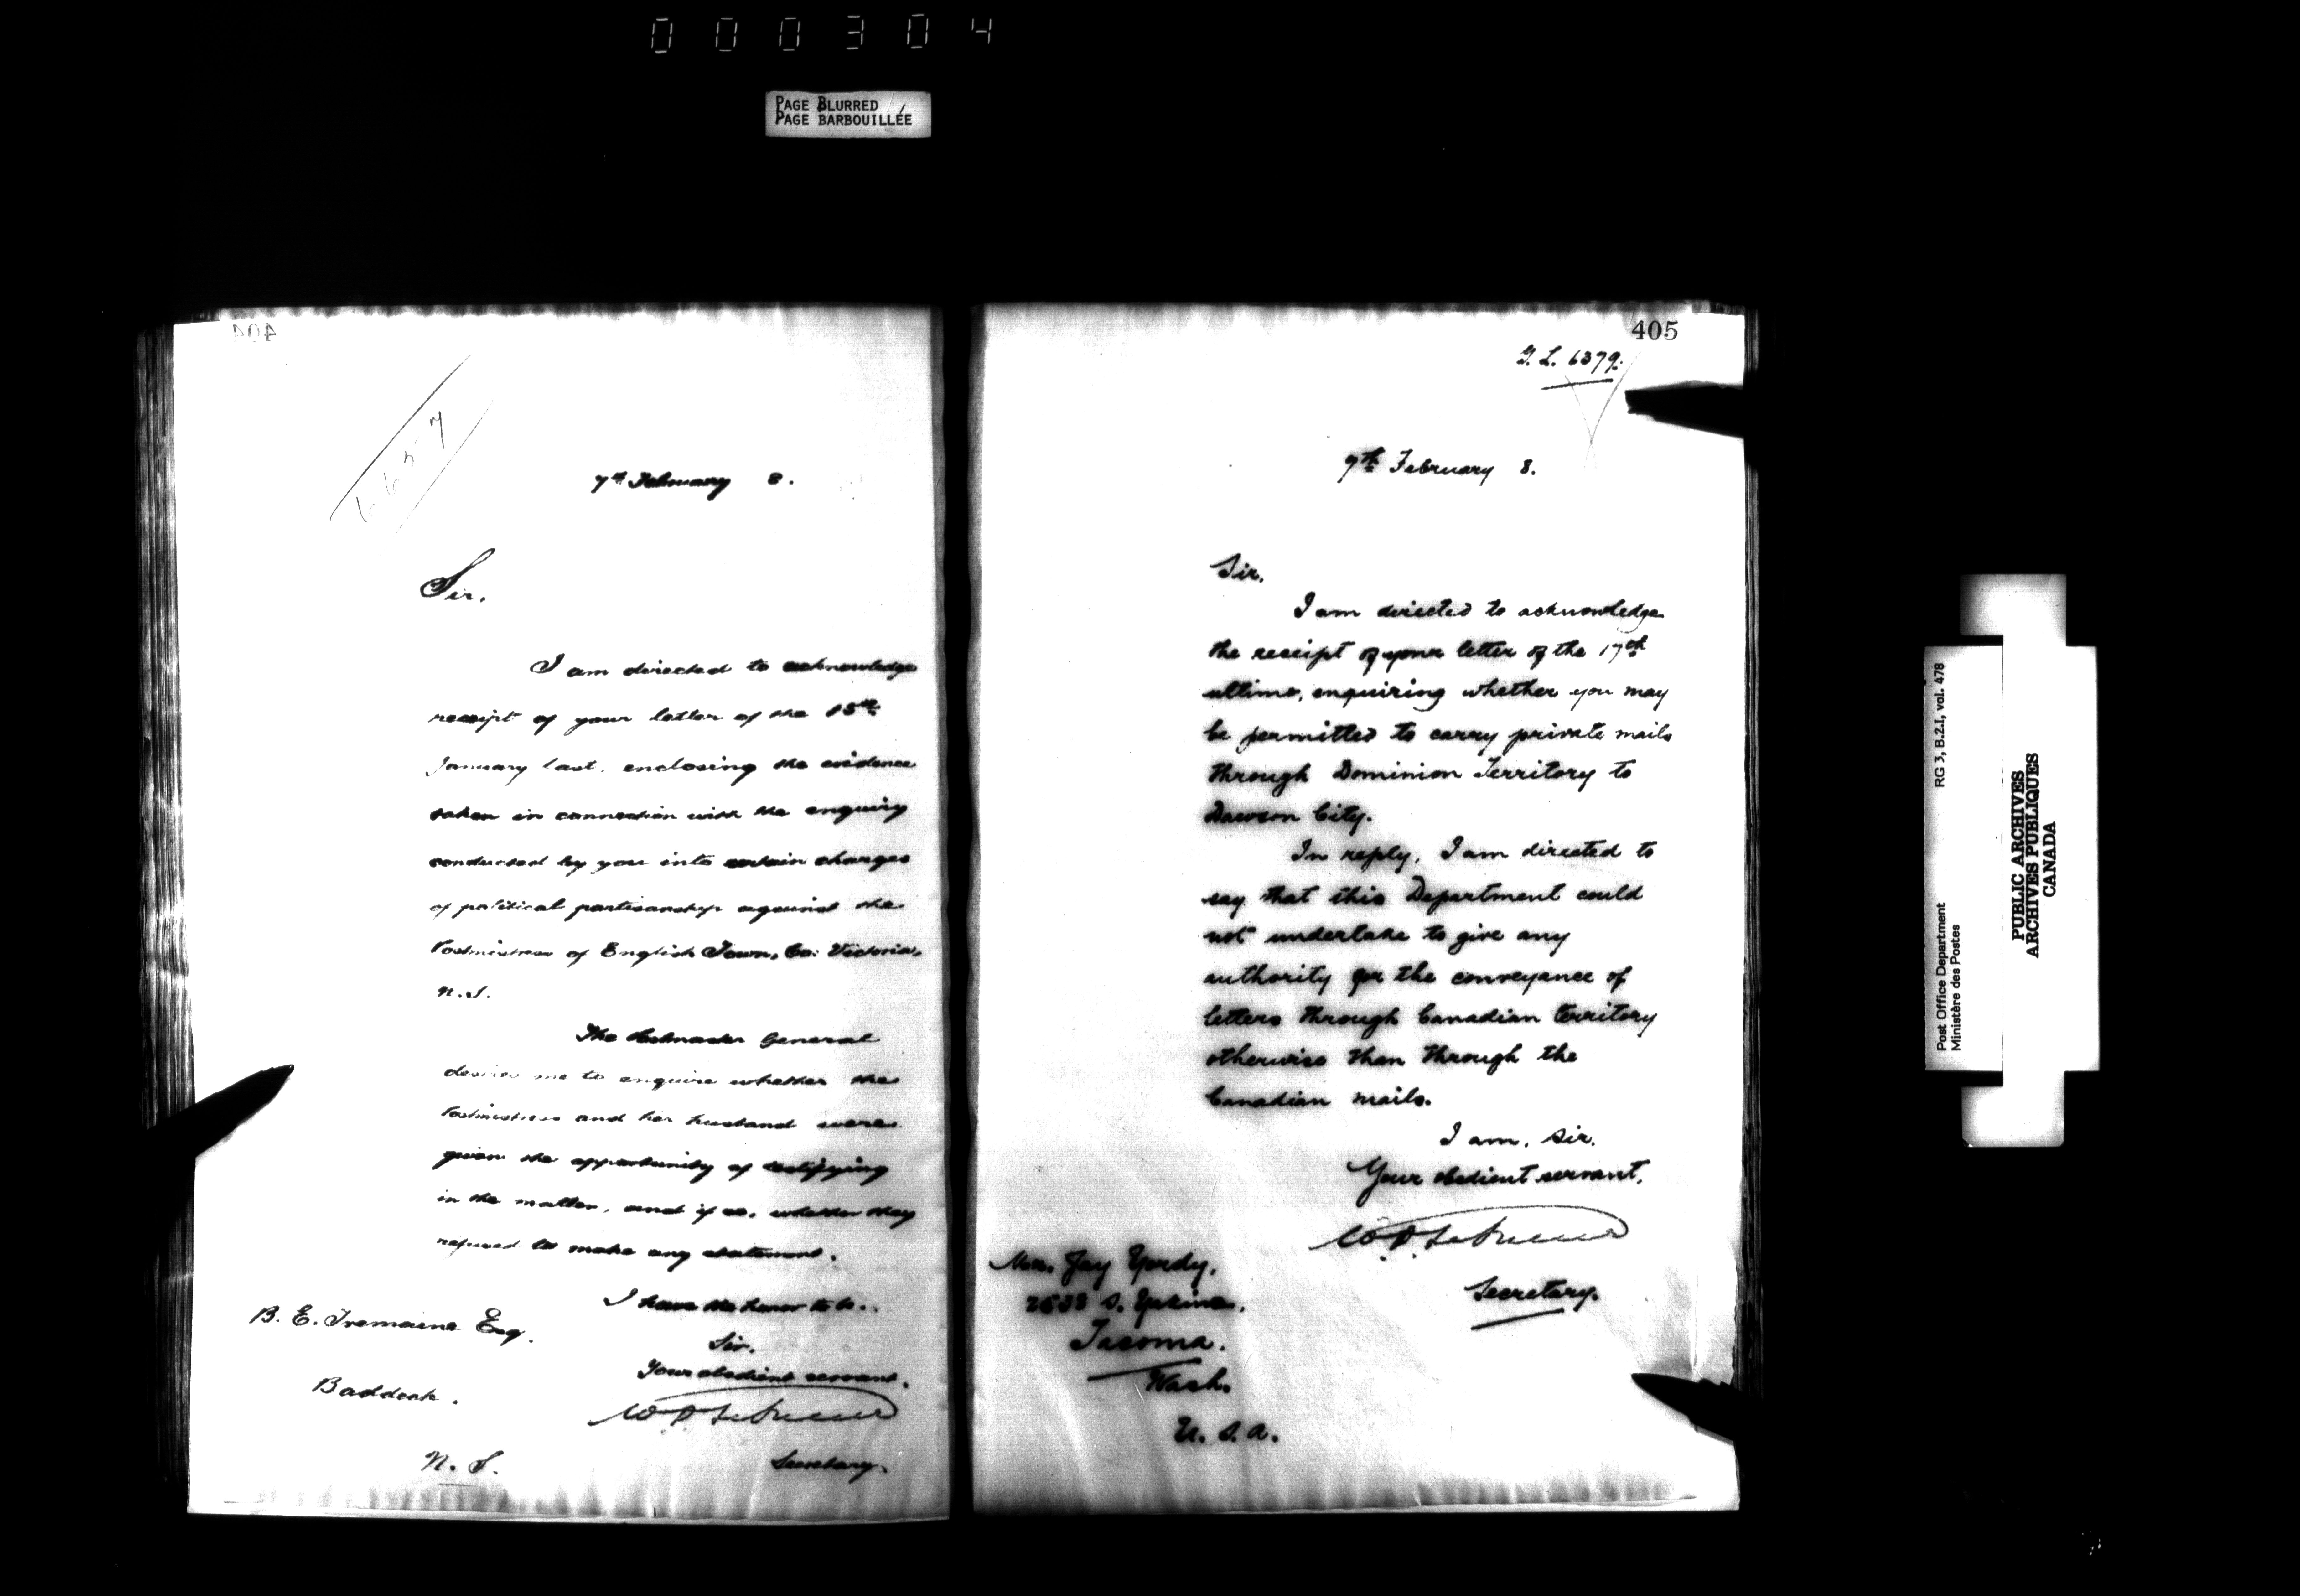 000304
PAGE BLURRED
PAGE BARBOUILLÉE
404
6657
7th February 8.
Sir,
I am directed to acknowledge
receipt of your letter of the 18th
January last, enclosing the evidence
taken in connection with the enquiry
conducted by you into certain charges
of political partisanship against the
Postmistress of English Town, Co: Victoria,
N.S.
The Postmaster General
desires me to enquire whether the
Postmistress and her husband were
given the opportunity of testifying
in the matter, and if so, whether they
refused to make any statement.
I have the honor to be,
Sir,
Your obedient servant,
Secretary.
B. E. Tremaine Esq.
Baddeck.
N. S.
405
G. L. 6379.
7th February 8.
Sir,
I am directed to acknowledge
the receipt of your letter of the 17th
ultimo, enquiring whether you may
be permitted to carry private mails
through Dominion Territory to
Dawson City.
In reply, I am directed to
say that this Department could
not undertake to give any
authority for the conveyance of
letters through Canadian territory
otherwise than through the
Canadian mails.
I am, Sir,
Your obedient servant,
Secretary.
Mr. Jay Yordy,
S.
Tacoma.
Wash.
U. S. A.
Post Office Department
Ministère des Postes
RG 3, B.2.I, vol. 478
PUBLIC ARCHIVES
ARCHIVES PUBLIQUES
CANADA